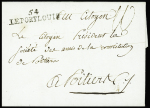 54
au Citoyen
Le citoyen Président la
société des amis de la constitution
de Poitiers
A Poitiers